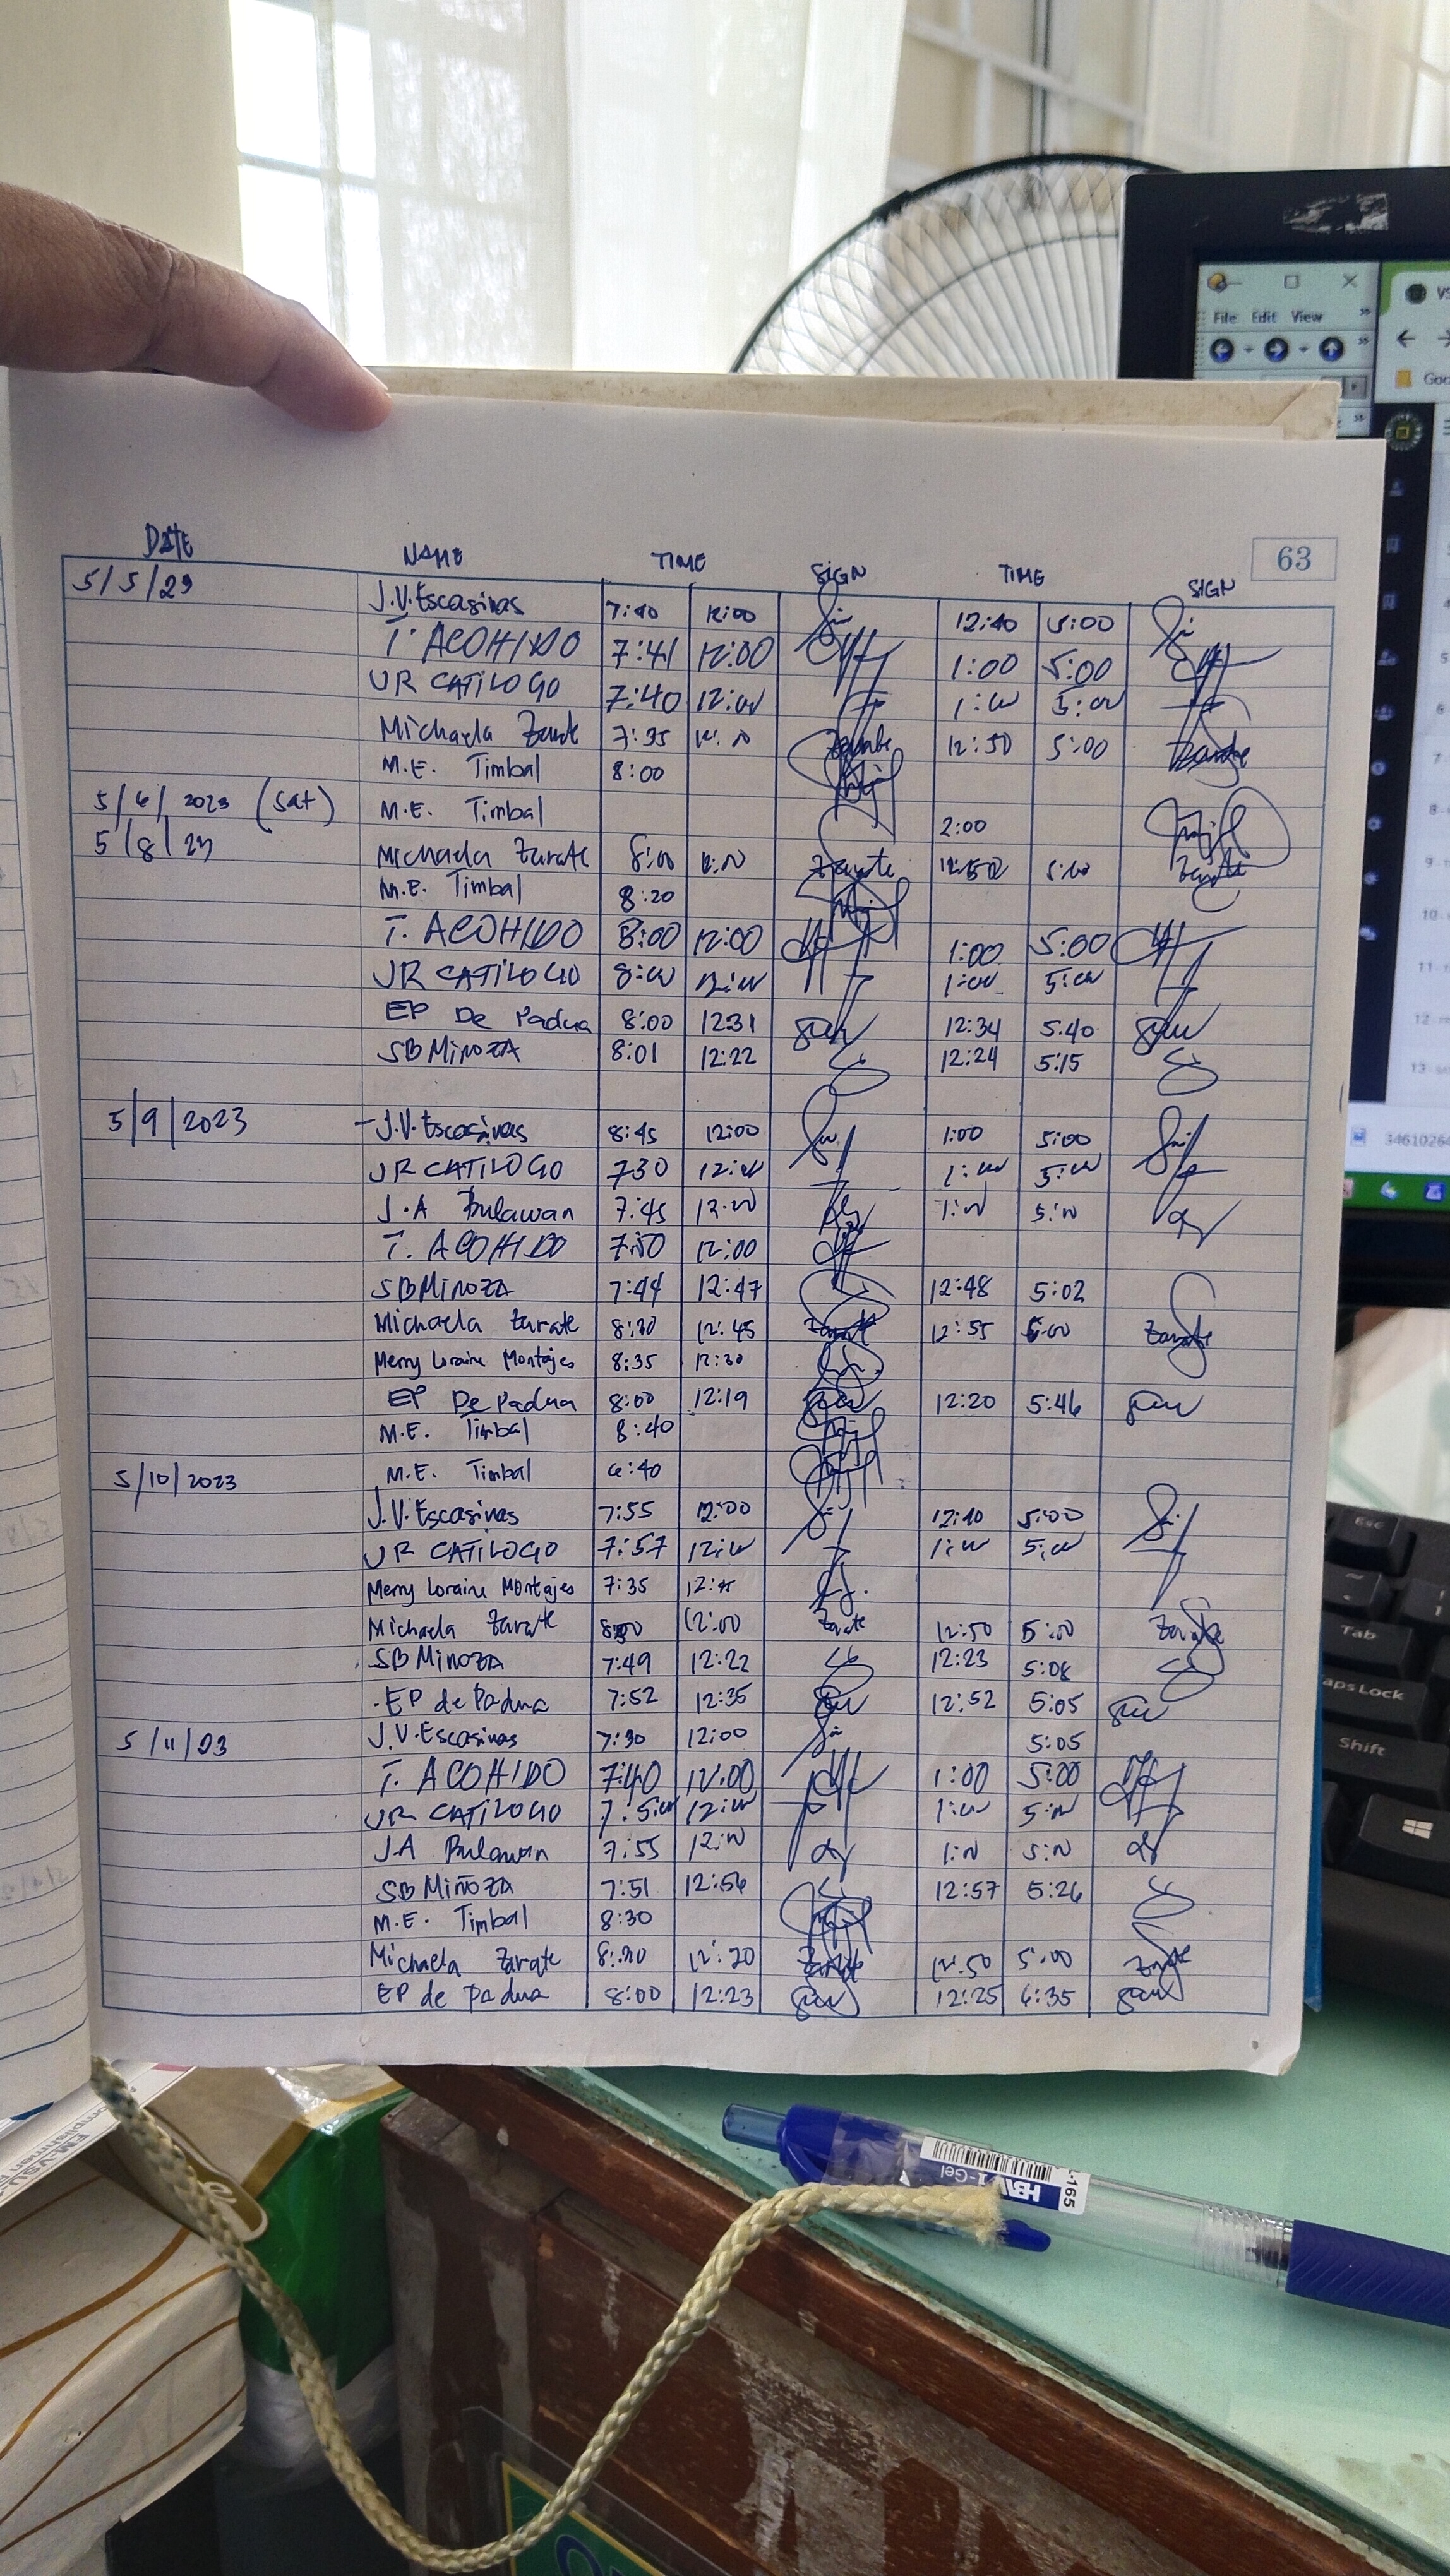 File Edit View
63
DATE NAME TIME SIGN TIME SIGN
5/5/23 J.V. Escasinas 7:40 12:00 12:40 5:00
T. ACOHIDO 7:41 12:00 1:00 5:00
JR CATILOGO 7:40 12:00 1:00 5:00
Michaela Zarate 7:35 Zarate 12:50 5:00 Zarate
M.E. Timbal 8:00
5/6/2023 (Sat) M.E. Timbal 2:00
5/8/23 Michaela Zarate 8:00 Zarate 12:50 Zarate
M.E. Timbal 8:20
T. ACOHIDO 8:00 12:00 1:00 5:00
JR CATILOGO 8:00 12:00 1:00 5:00
EP De Padua 8:00 1231 12:34 5:40
SB MiNOZA 8:01 12:22 12:24 5:15
5/9/2023 - J.V. Escasinas 8:45 12:00 1:00 5:00
JR CATILOGO 730 12:00 1:00 5:00
J.A Bulawan 7:45 12:00 1:00 5:00
T. ACOHIDO 7:50 12:00
SB MiNOZA 7:44 12:47 12:48 5:02
Michaela Zarate 8:30 12:45 Zarate 12:55 5:00 Zarate
Merry Loraine Montajes 8:35 12:30
EP De Padua 8:00 12:19 12:20 5:46
M.E. Timbal 8:40
5/10/2023 M.E. Timbal 6:40
J.V. Escasinas 7:55 12:00 12:40 5:00
JR CATILOGO 7:57 12:00 1:00 5:00
Merry Loraine Montajes 7:35
Michaela Zarate 12:00 Zarate 12:50 5:00 Zarate
SB MiNOZA 7:49 12:22 12:23 5:08
EP de Padua 7:52 12:35 12:52 5:05
5/11/23 J.V. Escasinas 7:30 12:00 5:05
T. ACOHIDO 7:40 12:00 1:00 5:00
JR CATILOGO 12:00 1:00 5:00
JA Bulawan 7:55 12:00 1:00 5:00
SB MiÑOZA 7:51 12:56 12:57 5:26
M.E. Timbal 8:30
Michaela Zarate 12:20 Zarate 12:50 5:00 Zarate
EP de Padua 8:00 12:23 12:25 6:35
34610264
Esc
Tab
Caps Lock
Shift
HBW
I-Gel